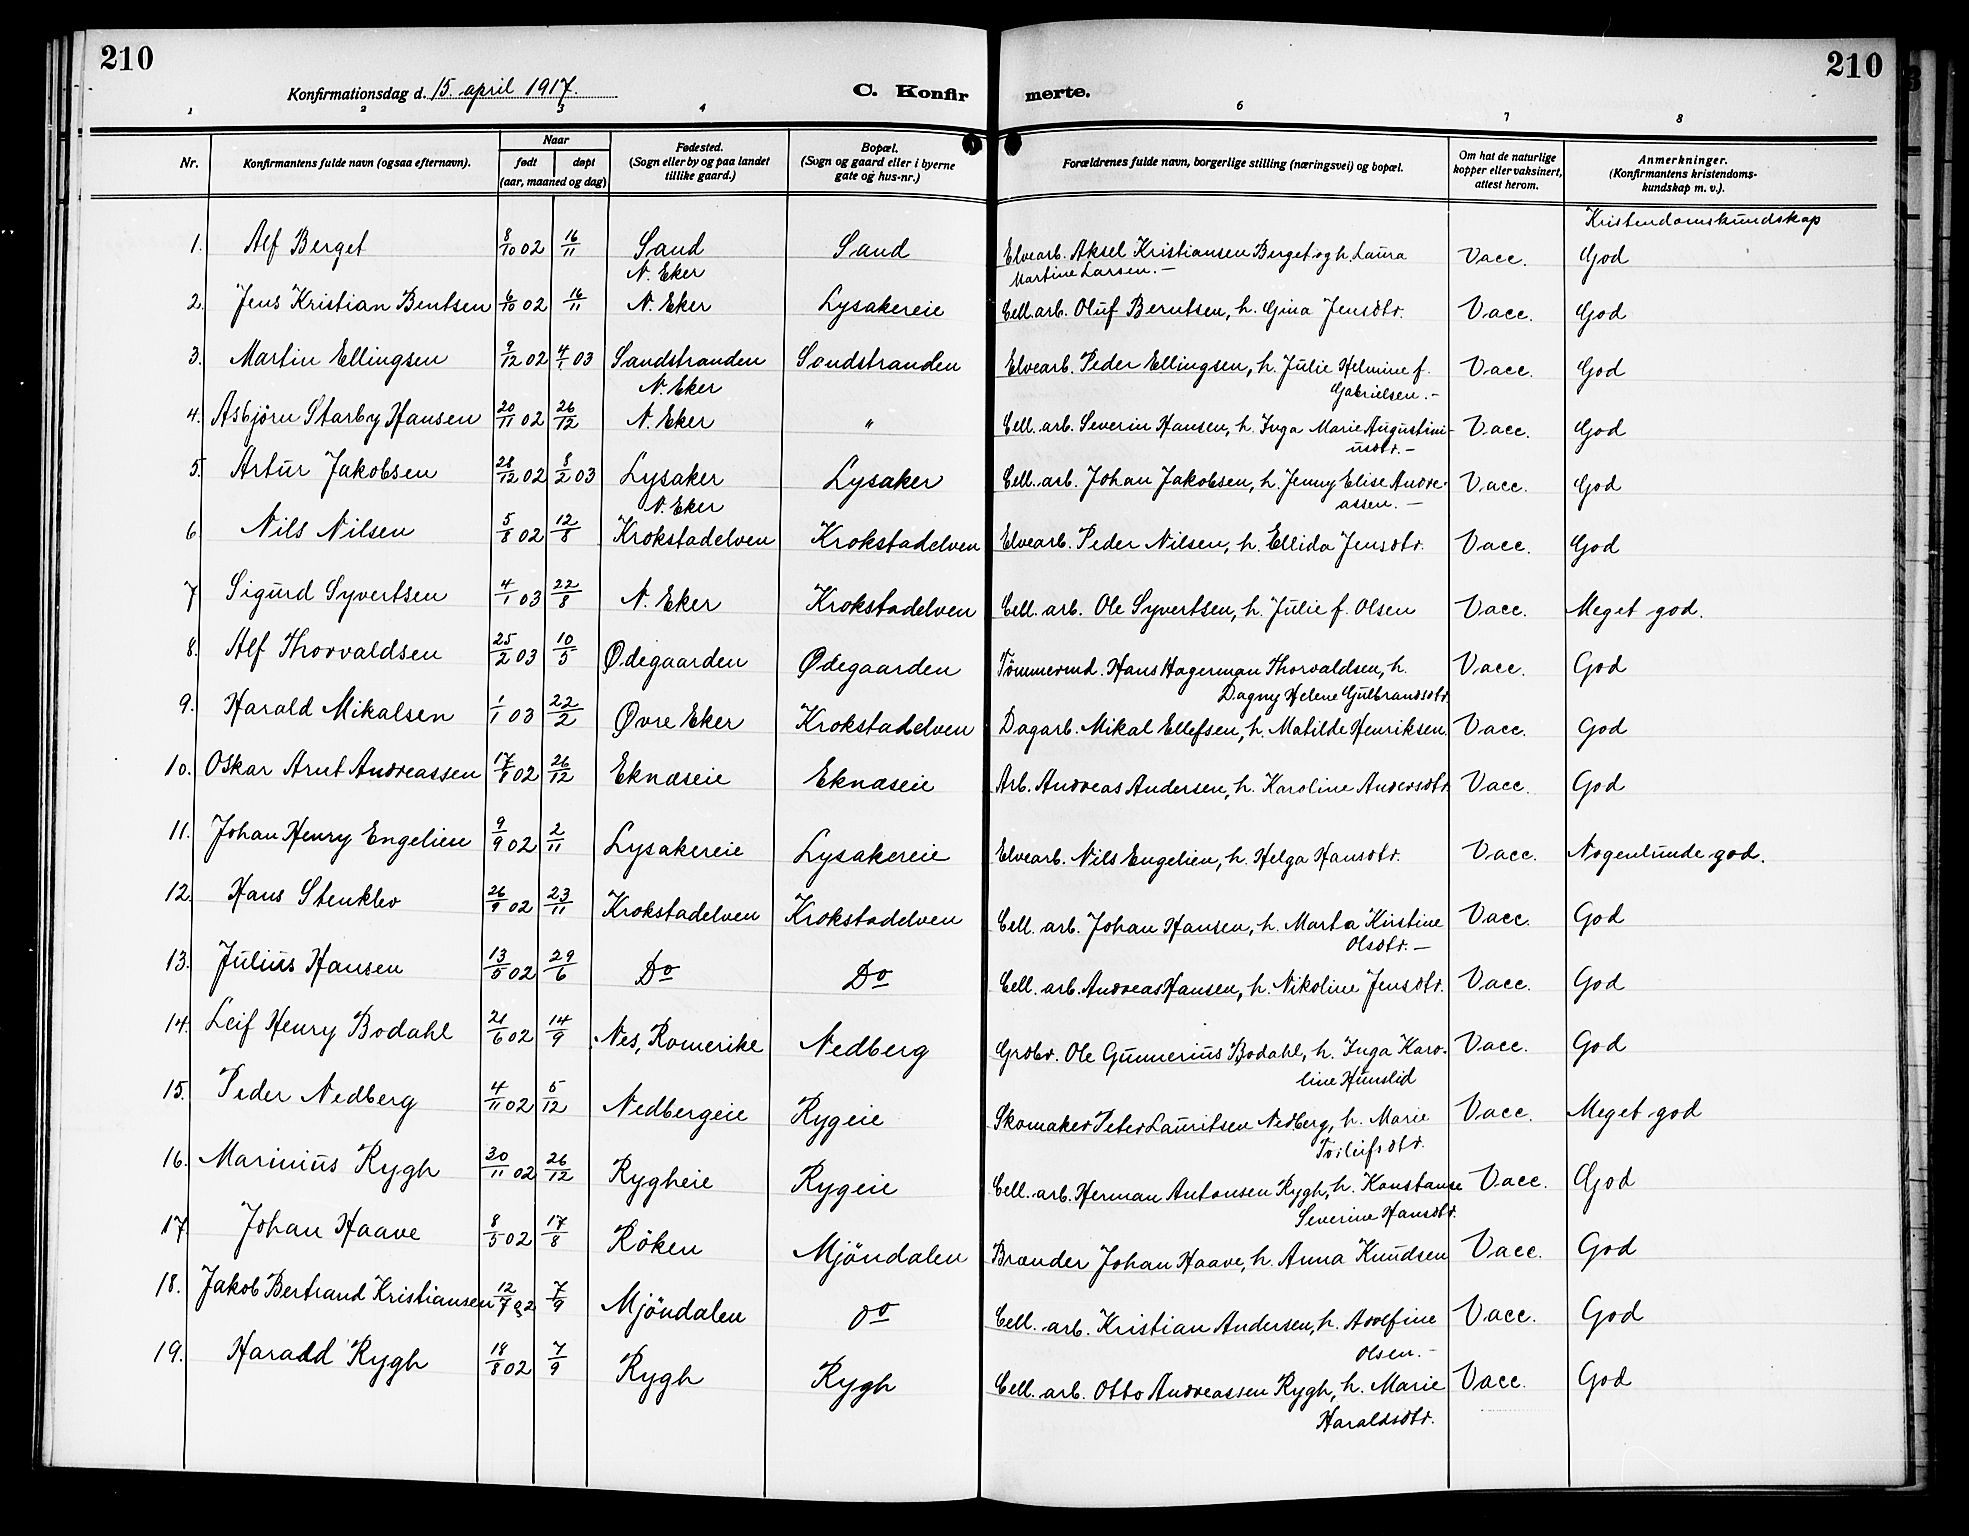 210
210
Konfirmationsdag d. 15. april 1917.
C. Konfir merte.
1 2 3 4 6 7 8
Nr. Konfirmantens fulde navn (ogsaa efternavn). Naar født døpt (aar, maaned og dag) Fødested. (Sogn eller by og paa landet tillike gaard.) Bopæl. (Sogn og gaard eller i byerne gate og hus-nr.) Forældrenes fulde navn, borgerlige stilling (næringsvei) og bopæl. Om hat de naturlige kopper eller vaksinert, attest herom. Anmerkninger. (Konfirmantens kristendoms-kundskap m. v.).
Kristendomskundskap
1. Alf Berget 8/10 02 16/11 Sand Sand Elvearb. Aksel Kristiansen Berget og h. Laura Vacc. God
N. Eker Martine Larsen.—
2. Jens Kristian Bentsen 6/10 02 16/11 N. Eker Lysakereie Cell. arb. Oluf Berntsen, h. Gina Jensdtr. Vacc. God
3. Martin Ellingsen 9/12 02 4/1 03 Sandstranden Sandstranden Elvearb. Peder Ellingsen, h. Julie Helmine f. Vacc. God
N. Eker Gabrielsen.—
4. Asbjørn Starby Hansen 20/11 02 26/12 N. Eker " Cell. arb. Severin Hansen, h. Inga Marie Augustini- Vacc. God
usdtr.—
5. Artur Jakobsen 28/12 02 8/2 03 Lysaker Lysaker Cell. arb. Johan Jakobsen, h. Jenny Elise Andre- Vacc. God
N. Eker assen.—
6 Nils Nilsen 5/8 02 12/8 Krokstadelven Krokstadelven Elvearb. Peder Nilsen, h. Ellida Jensdtr. Vacc. God
7 Sigurd Syvertsen 4/1 03 22/8 N. Eker Krokstadelven Cell. arb. Ole Syvertsen, h. Julie f. Olsen Vacc. Meget god.
8. Alf Thorvaldsen 25/2 03 10/5 Ødegaarden Ødegaarden Tømmermd. Hans Hagerman Thorvaldsen, h. Vacc. God
Dagny Helene Gulbrandsdtr.
9. Harald Mikalsen 1/1 03 22/2 Øvre Eker Krokstadelven Dagarb. Mikal Ellefsen, h. Matilde Henriksen. Vacc. God
10. Oskar Arnt Andreassen 17/8 02 26/12 Eknæseie Eknæseie Arb. Andreas Andersen, h. Karoline Andersdtr. Vacc. God
11. Johan Henry Engelien 9/9 02 2/11 Lysakereie Lysakereie Elvearb. Nils Engelien, h. Helga Hansdtr. Vacc. Nogenlunde god.
12. Hans Stenklev 26/9 02 23/11 Krokstadelven Krokstadelven Cell. arb. Johan Hansen, h. Marta Kirstine Vacc. God
Olsdtr.—
13. Julius Hansen 13/5 02 29/6 Do Do Cell. arb. Andreas Hansen, h. Nikoline Jensdtr. Vacc. God
14. Leif Henry Bodahl 21/6 02 14/9 Nes, Romerike Nedberg Grdbr. Ole Gunnerius Bodahl, h. Inga Karo- Vacc. God
line Hunslid
15. Peder Nedberg 4/11 02 5/12 Nedbergeie Rygeie Skomaker Peter Lauritsen Nedberg, h. Marie Vacc. Meget god
16. Marinius Rygh 30/11 02 26/12 Rygheie Rygeie Cell. arb. Herman Antonsen Rygh, h. Konstanse Vacc. God
Severine Hansdtr.
17. Johan Haave 8/5 02 17/8 Röken Mjöndalen Brænder Johan Haave, h. Anna Knudsen Vacc. God
18. Jakob Bertrand Kristiansen 12/7 02 7/9 Mjöndalen do Cell. arb. Kristian Andersen, h. Adolfine Vacc. God
Olsen.—
19. Harald Rygh 18/8 02 7/9 Rygh Rygh Cell. arb. Otto Andreassen Rygh, h. Marie Vacc. God
Haraldsdtr.